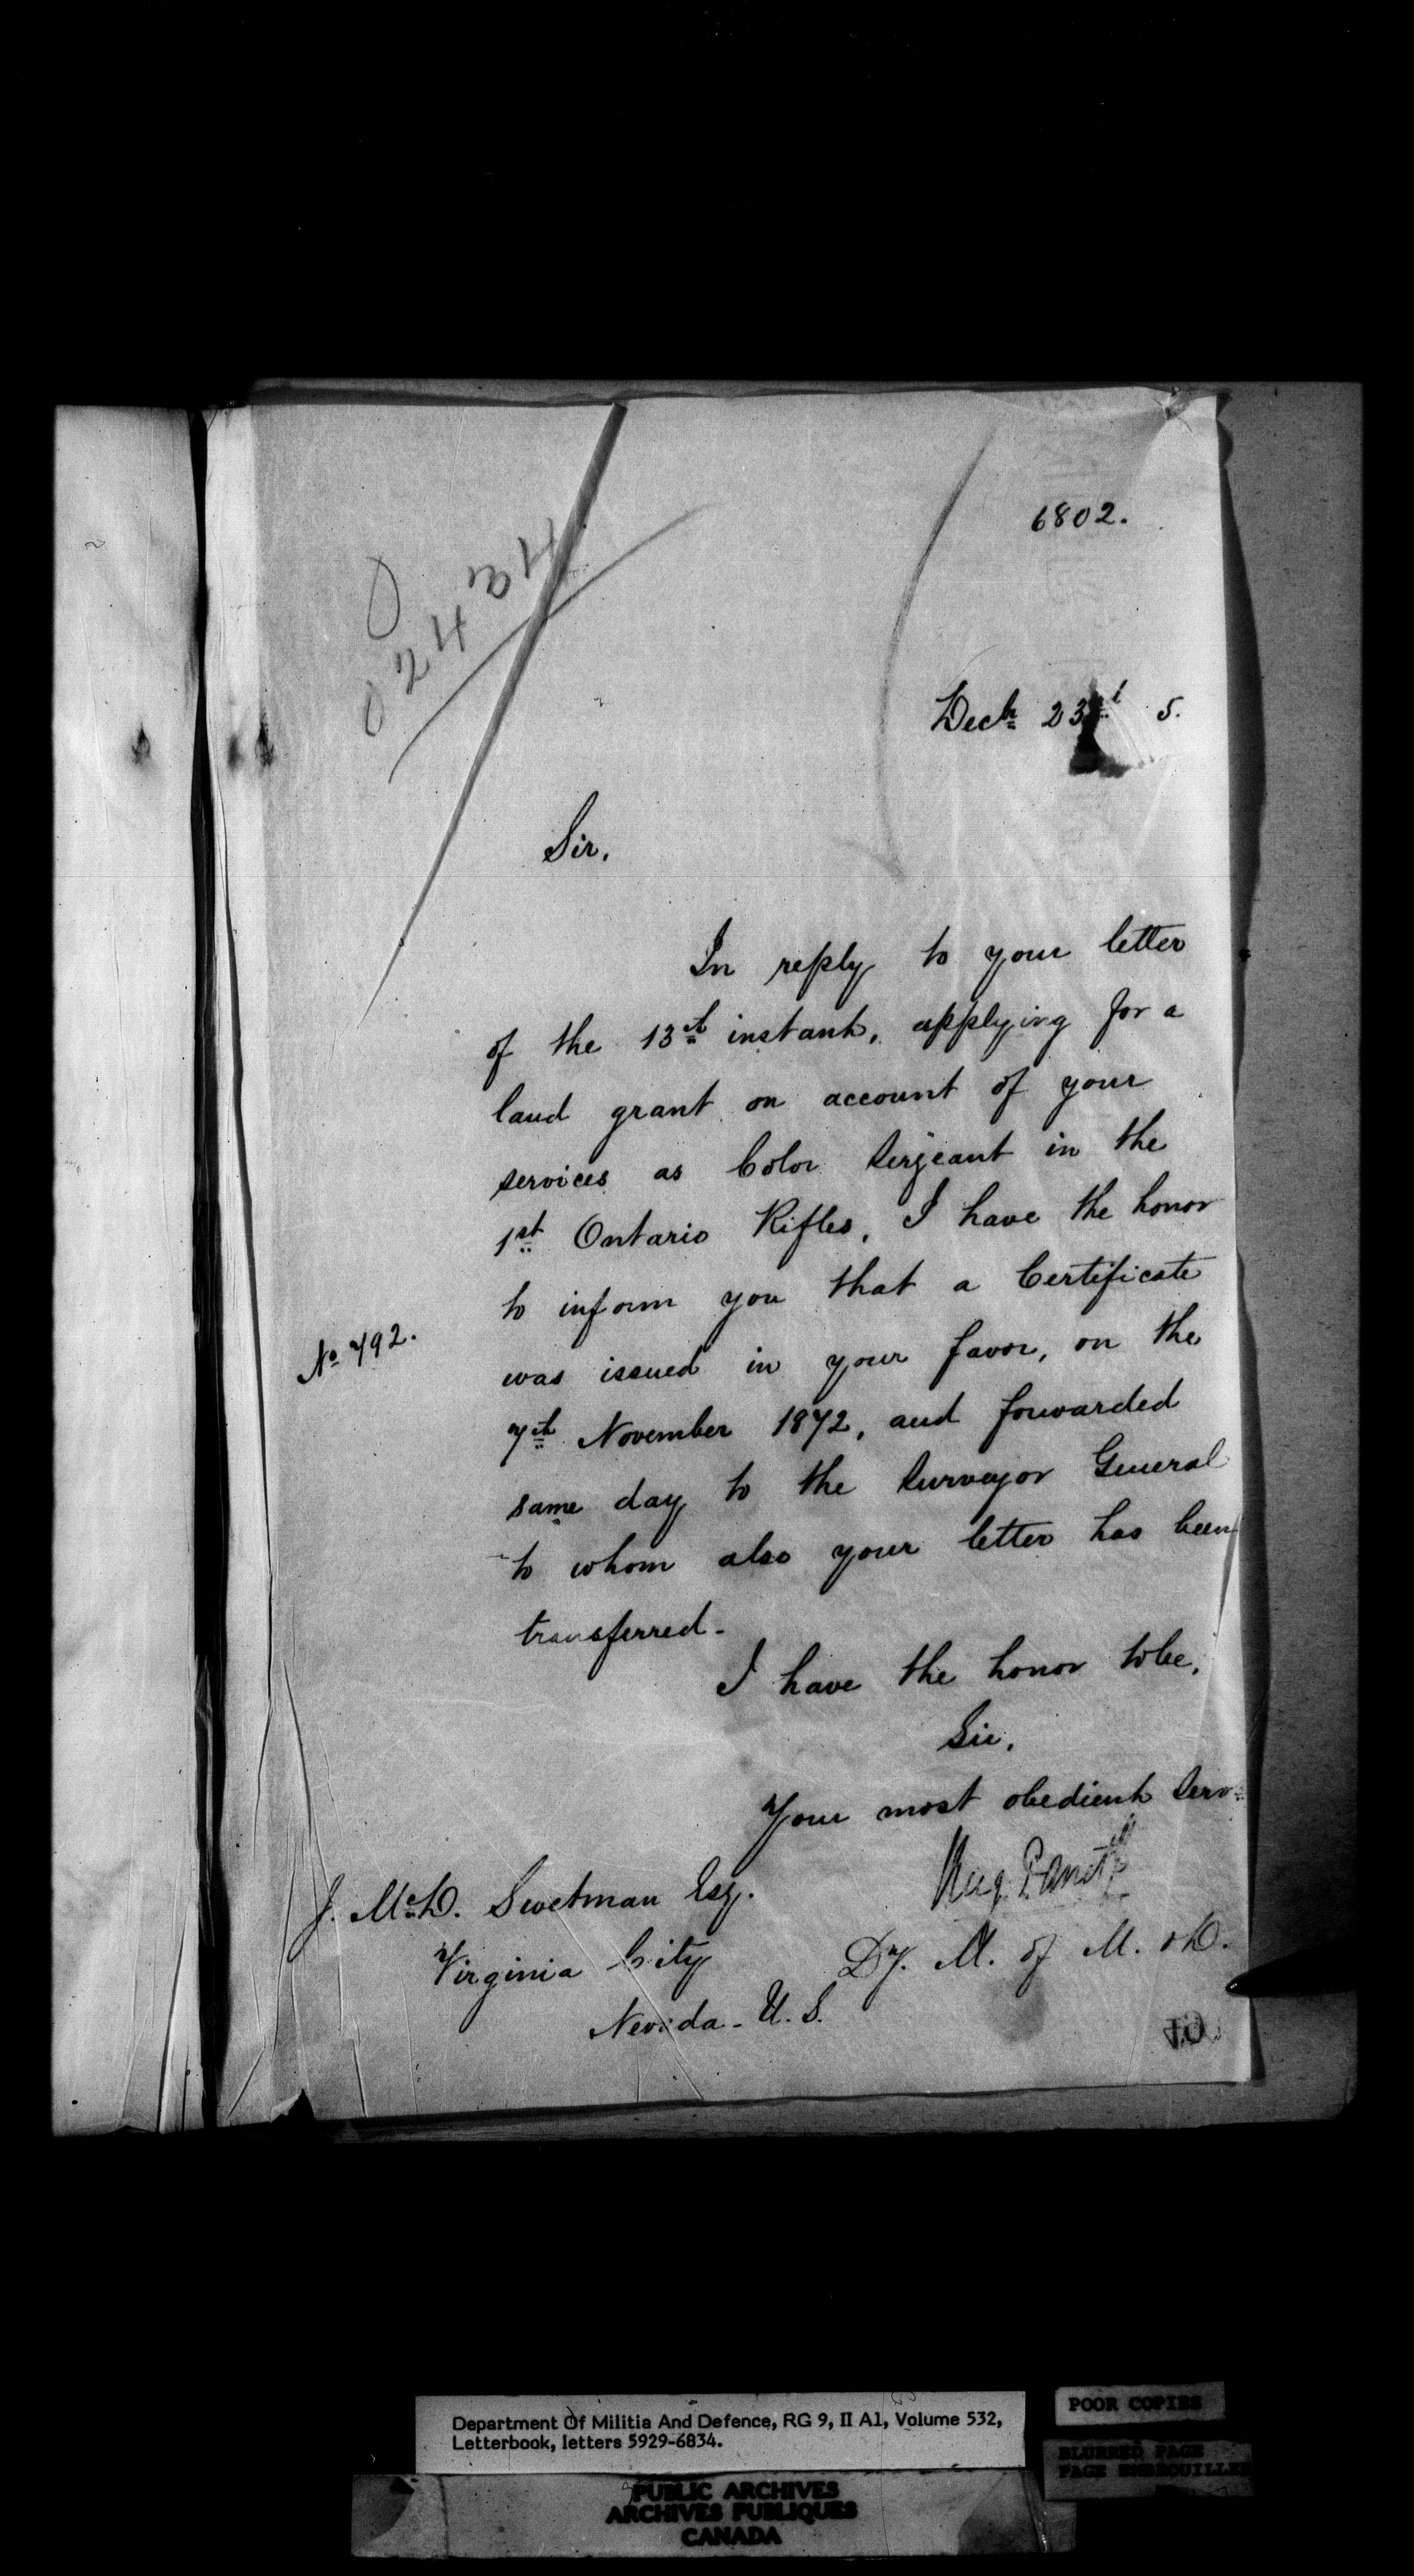 6802.
02424
Decr 23rd 5.
Sir,
In reply to your letter
of the 13th instant, applying for a
land grant on account of your
services as Color Sergeant in the
1st Ontario Rifles, I have the honor
to inform you that a Certificate
No 792.
was issued in your favor, on the
7th November 1872, and forwarded
same day to the Surveyor General
to whom also your letter has been
transferred.
I have the honor to be,
Sir,
Your most obedient Serv
J. McD. Swetman Esq.
Virginia City
Nevada - U. S.
Dy. M. of M. & D.
Department Of Militia And Defence, RG 9, II A1, Volume 532,
Letterbook, letters 5929-6834.
POOR COPIES
BLURRED PAGE
PAGE EMBROUILLEE
PUBLIC ARCHIVES
ARCHIVES PUBLIQUES
CANADA